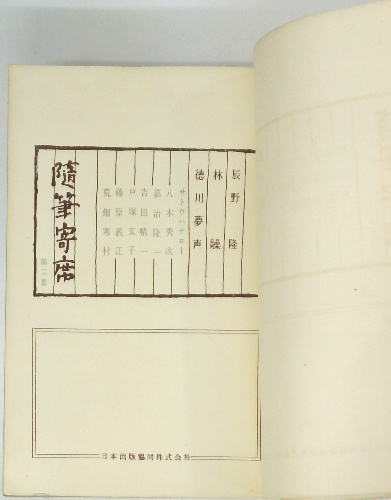 辰野隆
林髞
徳川夢声
サトウハチロー
八木秀次
嘉治隆一
吉田精一
戸塚文子
藤原義江
荒畑寒村
隨筆寄席
第二集
日本出版協同株式会社